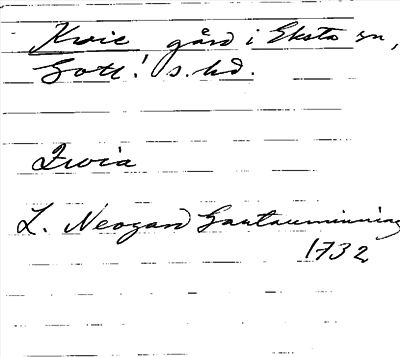 Kvie gård i Eksta sn,
Gotl. s. hd.
Qvia
L. Neogard Gautauminning
1732